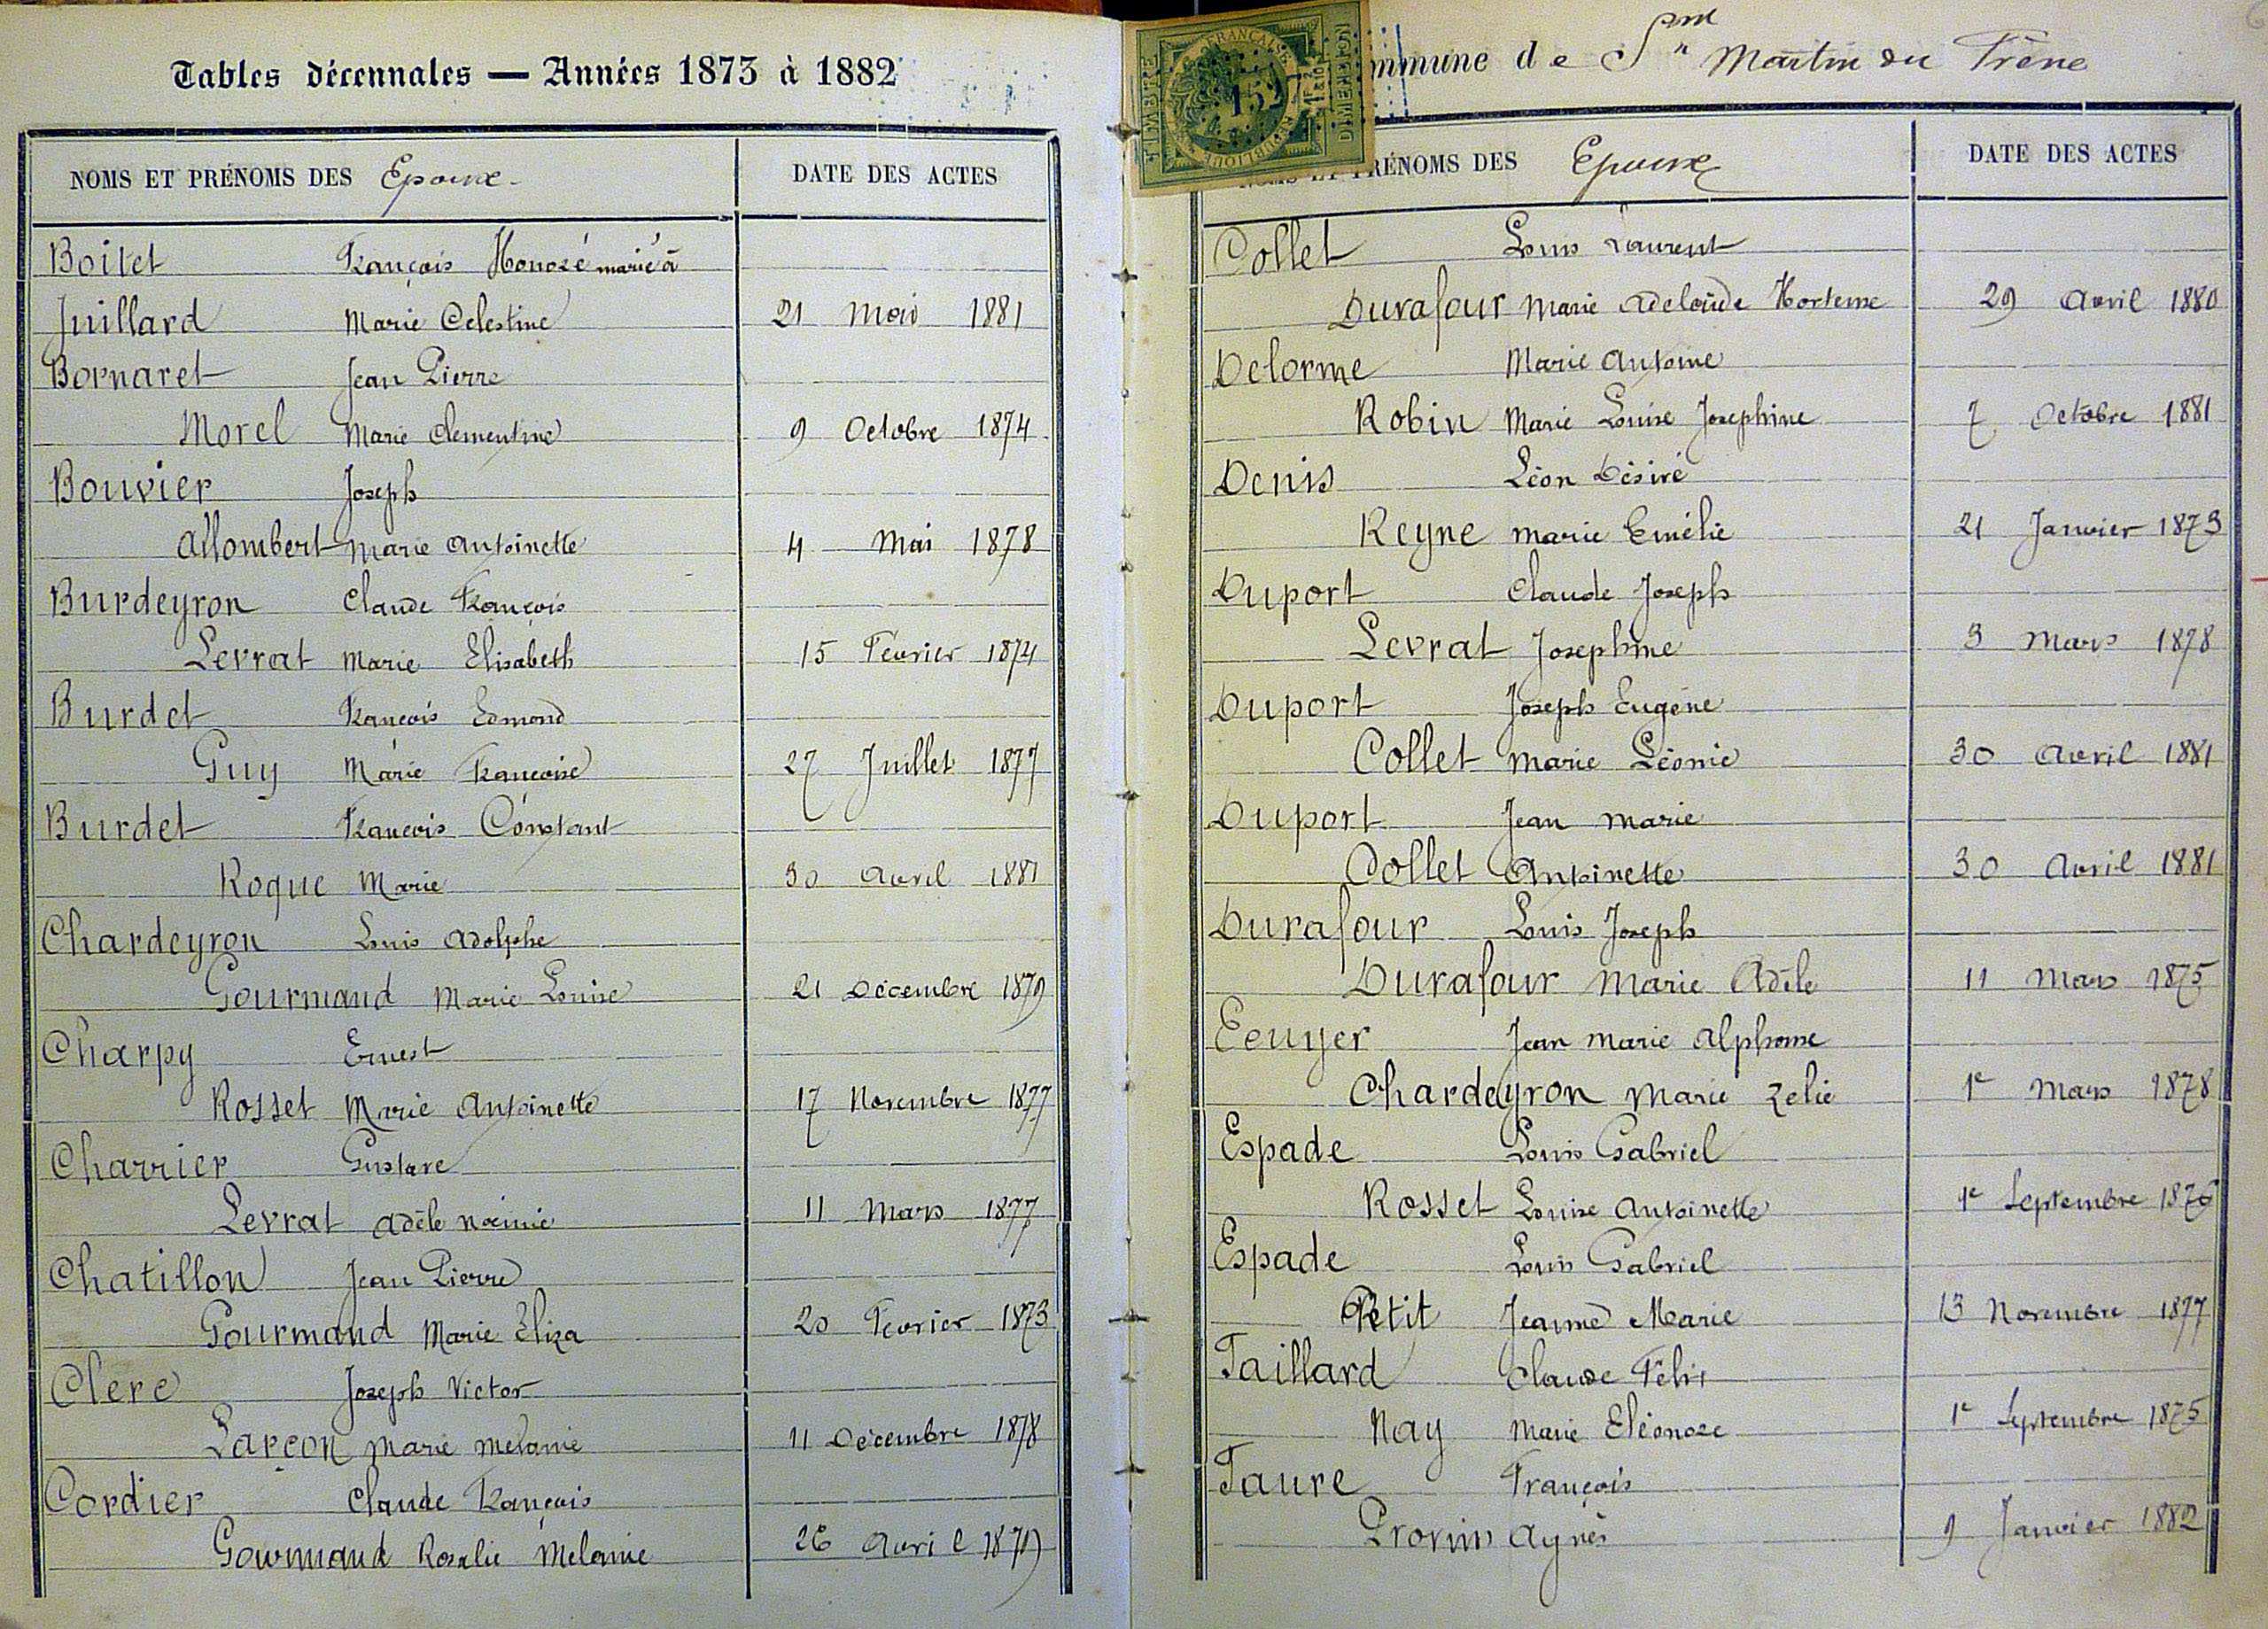 Tables décennales — Années 1873 à 1882
NOMS ET PRÉNOMS DES Epoux DATE DES ACTES
Boitet François Honoré marié à
Juillard Marie Celestine 21 Mai 1881
Bornaret Jean Pierre
Morel Marie Clementine 9 Octobre 1874
Bouvier Joseph
Allombert Marie Antoinette 4 Mai 1878
Burdeyron Claude François
Levrat Marie Elisabeth 15 Février 1874
Burdet François Edmond
Guy Marie Françoise 27 Juillet 1877
Burdet François Constant
Roque Marie 30 Avril 1881
Chardeyron Louis Adolphe
Gourmand Marie Louise 21 Décembre 1879
Charpy Ernest
Rosset Marie Antoinette 17 Novembre 1877
Charrier Gustave
Levrat Adèle Noëmie 11 Mars 1877
Chatillon Jean Pierre
Gourmand Marie Eliza 20 Février 1873
Clerc Joseph Victor
Larçon Marie Melanie 11 Décembre 1878
Cordier Claude François
Gourmand Rosalie Melanie 26 Avril 1879
mmune de St Martin du Frêne
RÉPUBLIQUE FRANÇAISE
DIMENSION
PRÉNOMS DES Epoux DATE DES ACTES
Collet Louis Laurent
Durafour Marie Adelaïde Hortense 29 Avril 1880
Delorme Marie Antoine
Robin Marie Louise Josephine 7 Octobre 1881
Denis Léon Désiré
Reyne Marie Emélie 21 Janvier 1873
Duport Claude Joseph
Levrat Josephine 3 Mars 1878
Duport Joseph Eugène
Collet Marie Léonie 30 Avril 1881
Duport Jean Marie
Collet Antoinette 30 Avril 1881
Durafour Louis Joseph
Durafour Marie Adèle 11 Mars 1875
Ecuyer Jean Marie Alphonse
Chardeyron Marie Zelie 1e Mars 1878
Espade Louis Gabriel
Rosset Louise Antoinette 1e Septembre 1876
Espade Louis Gabriel
Petit Jeanne Marie 13 Novembre 1877
Faillard Claude Félix
Nay Marie Eléonore 1e Septembre 1875
Faure François
Provin Agnès 9 Janvier 1882